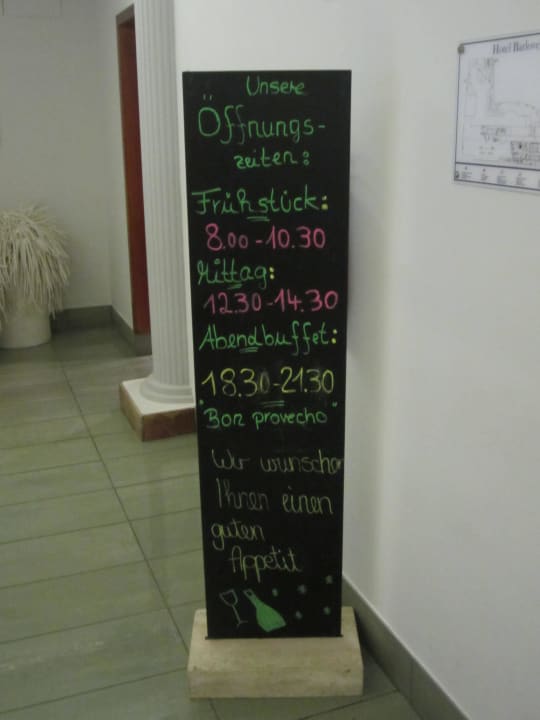 Unsere
Öffnungs-
zeiten:
Frühstück:
8.00-10.30
Mittag:
12.30-14.30
Abendbuffet:
18.30-21.30
"Bon provecho"
Wir wünschen
Ihnen einen
guten
Appetit
Hotel